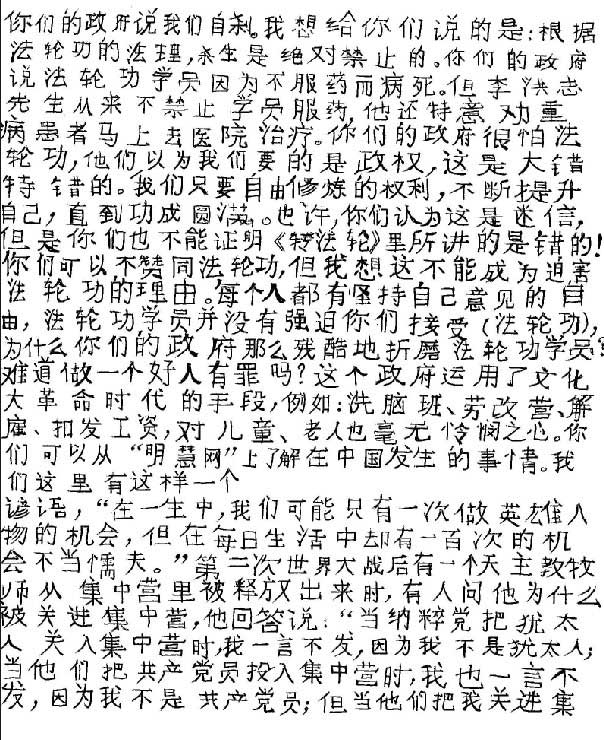 你们的政府说我们自刹。我想给你们说的是：根据
法轮功的法理，杀生是绝对禁止的。你们的政府
说法轮功学员因为不服药而病死。但李洪志
先生从来不禁止学员服药，他还特意劝重
病患者马上去医院治疗。你们的政府很怕法
轮功，他们以为我们要的是政权，这是大错
特错的。我们只要自由修炼的权利，不断提升
自己，直到功成圆满。也许，你们认为这是迷信，
但是你们也不能证明《转法轮》里所讲的是错的！
你们可以不赞同法轮功，但我想这不能成为迫害
法轮功的理由。每个人都有坚持自己意见的自
由，法轮功学员并没有强迫你们接受（法轮功），
为什么你们的政府那么残酷地折磨法轮功学员？
难道做一个好人有罪吗？这个政府运用了文化
大革命时代的手段，例如：洗脑班、劳改营、解
雇、扣发工资，对儿童、老人也毫无怜悯之心。你
们可以从“明慧网”上了解在中国发生的事情。我
们这里有这样一个
谚语，“在一生中，我们可能只有一次做英雄人
物的机会，但在每日生活中却有一百次的机
会不当懦夫。”第二次世界大战后有一个天主教牧
师从集中营里被释放出来时，有人问他为什么
被关进集中营，他回答说：“当纳粹党把犹太
人关入集中营时，我一言不发，因为我不是犹太人；
当他们把共产党员投入集中营时，我也一言不
发，因为我不是共产党员；但当他们把我关进集